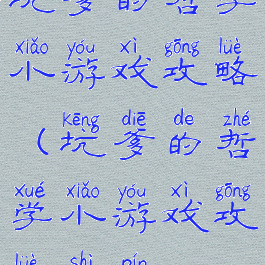 坑爹的哲学
xiǎo yóu xì gōng lüè
小游戏攻略
kēng diē de zhé
(坑爹的哲
xué xiǎo yóu xì gōng
学小游戏攻
lüè shì pín